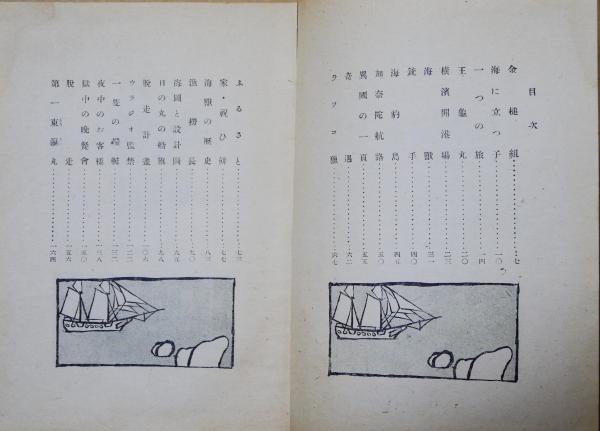 目次
金槌組………七
海に立つ子………一〇
一つの旅………一四
王龜丸………二〇
橫濱開港場………二三
海獸………三一
銃手………四〇
海豹島………四五
加奈陀航路………五〇
異國の一頁………五五
奇遇………六二
ラツコ獵………六七
ふるさと………七三
家・祝ひ餅………七七
海獸の歷史………八三
漁撈長………九〇
海圖と設計圖………九五
日の丸の船旗………九八
脫走計畫………一〇六
ウラジオ監禁………一二二
一隻の端艇………一三二
夜中のお客樣………一三八
獄中の晚餐會………一五〇
脫走………一五六
第一東瀛丸………一六四